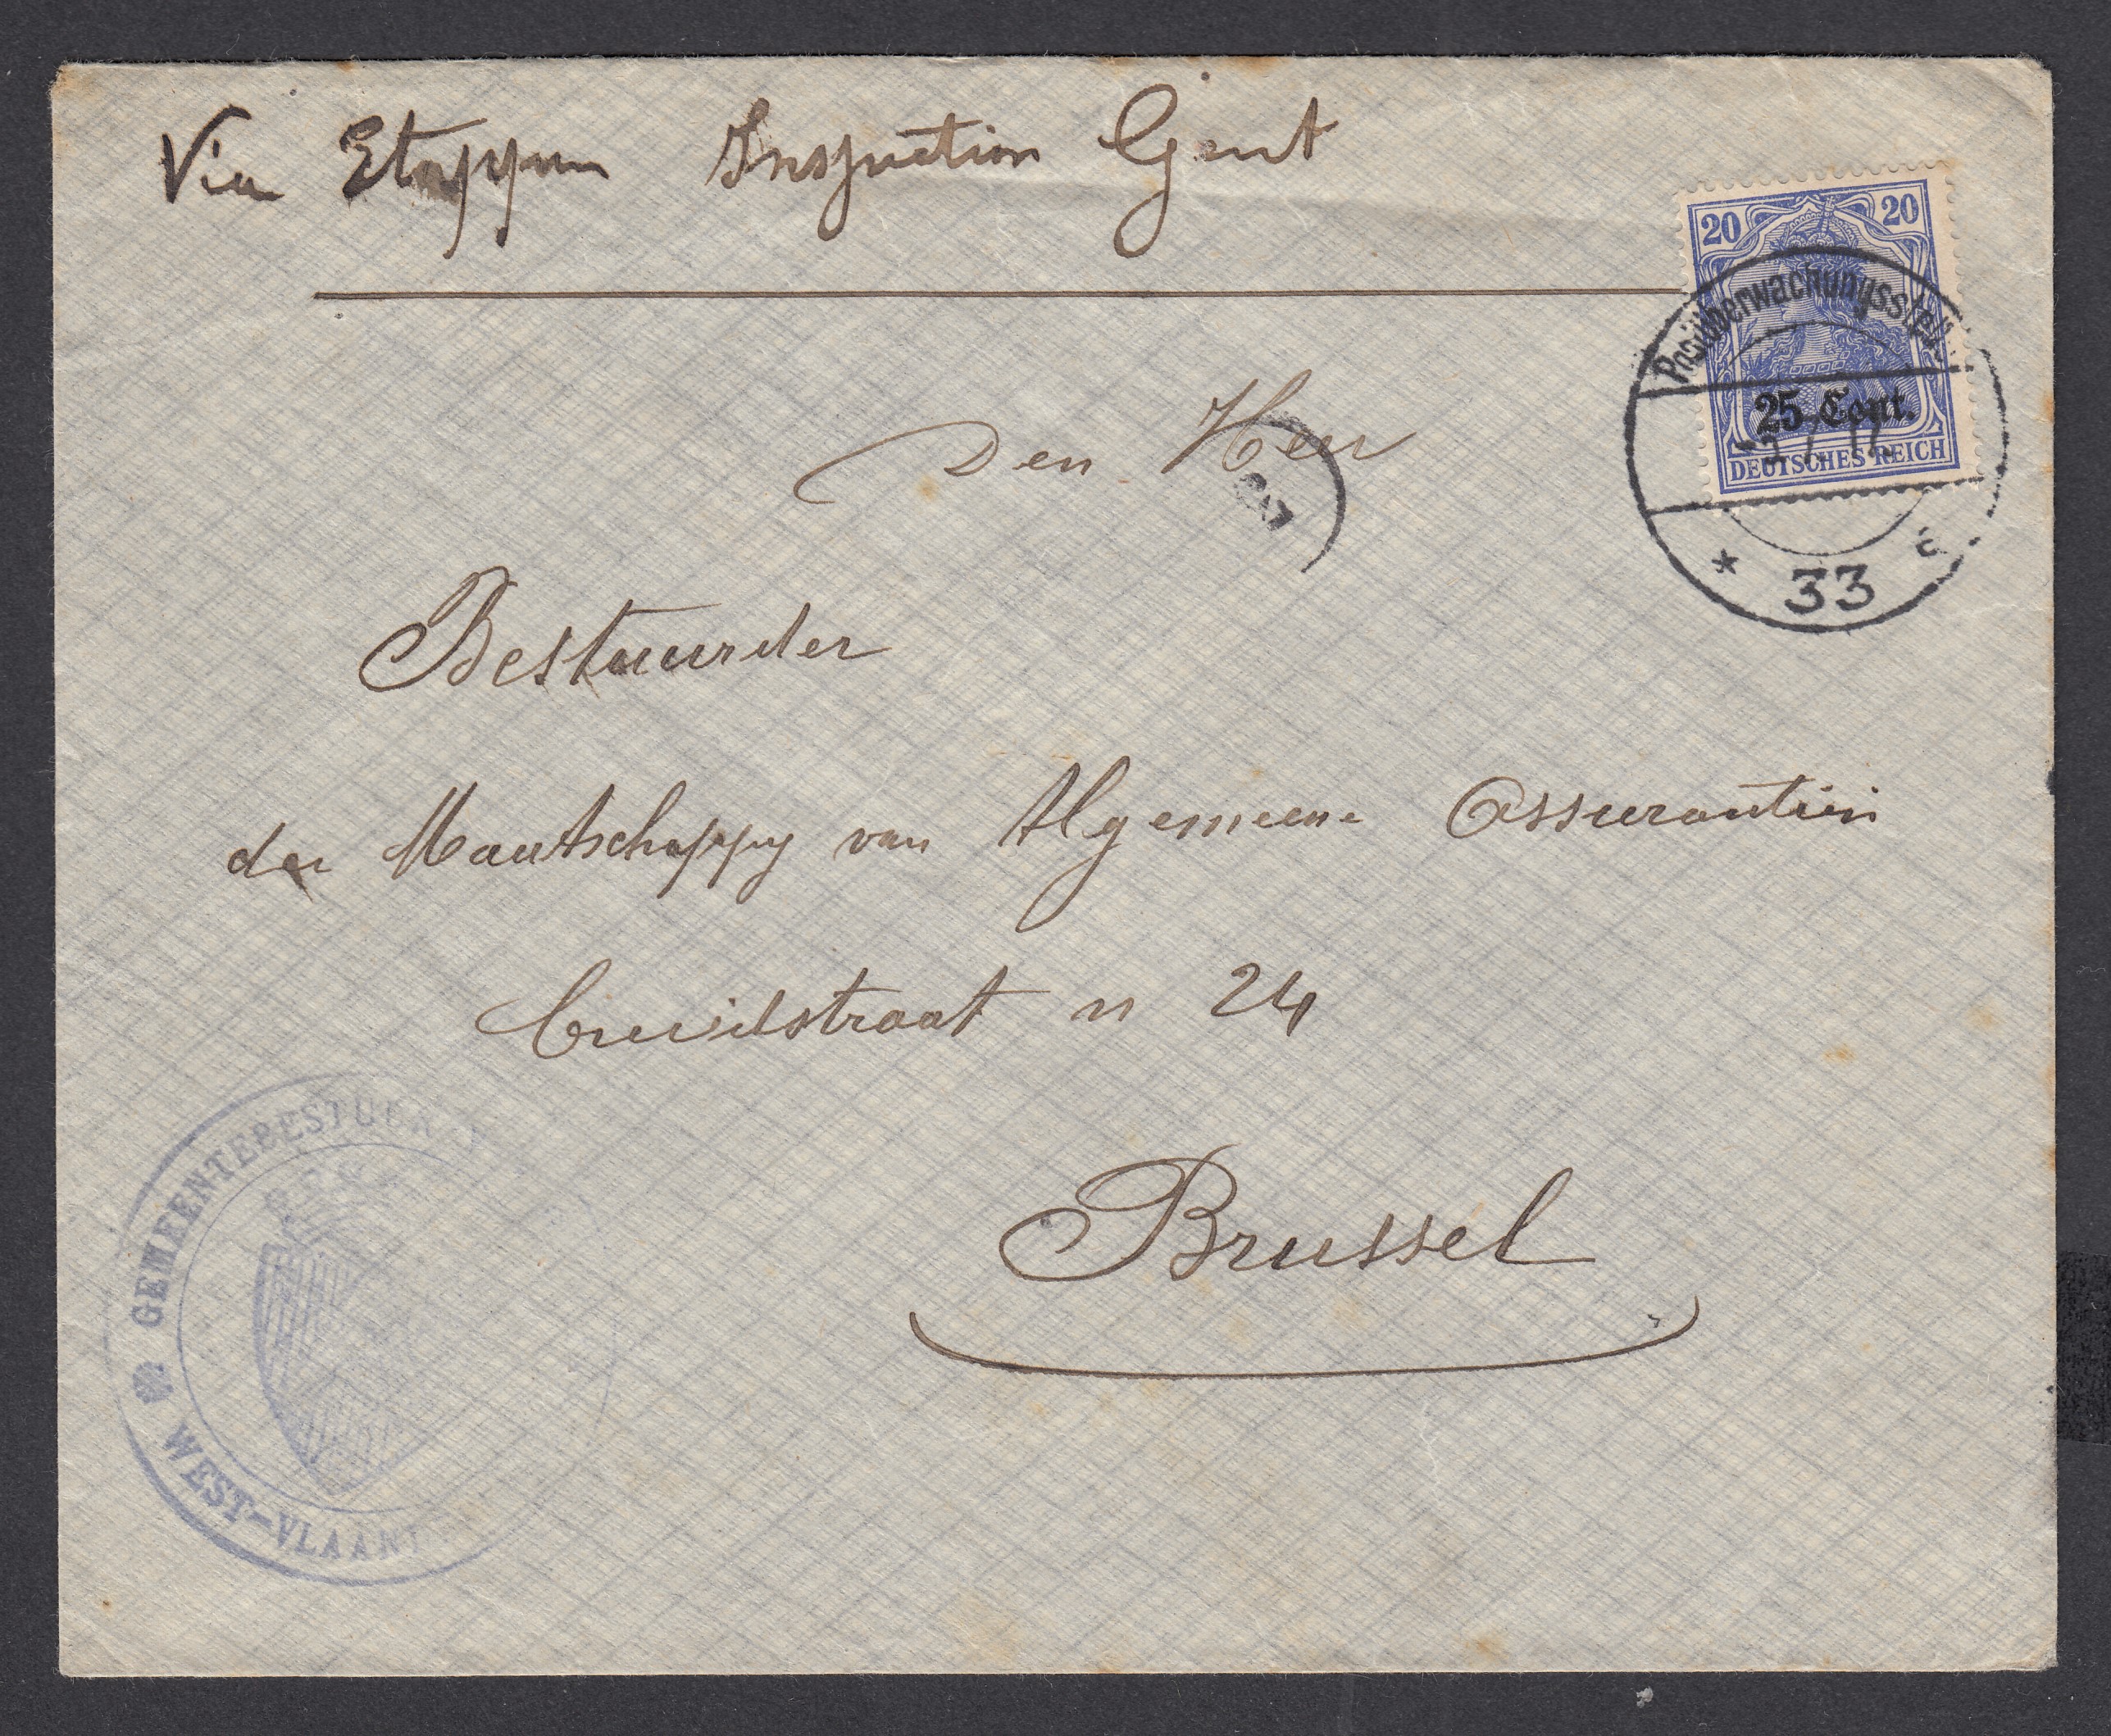 Via Etappen Inspection Gent
20 20
Postüberwachungsstelle
25 Cent.
DEUTSCHES REICH
* 33 a
Den Heer
Bestuurder
der Maatschappy van Algemeene Assurantien
Cruidstraat n 24
Brussel
GEMEENTEBESTUUR
WEST-VLAAN